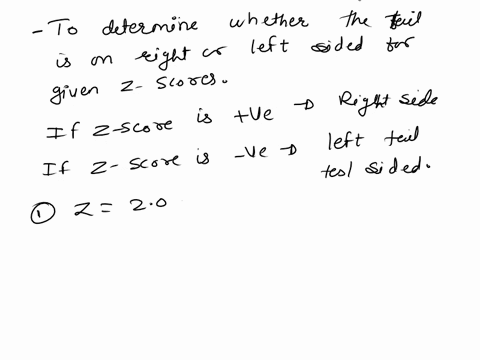 - To determine whether the tail
is on right or left sided for
given z- scores.
If z-score is +ve → Right side
If z- score is -ve → left tail
test sided.
① Z = 2.0